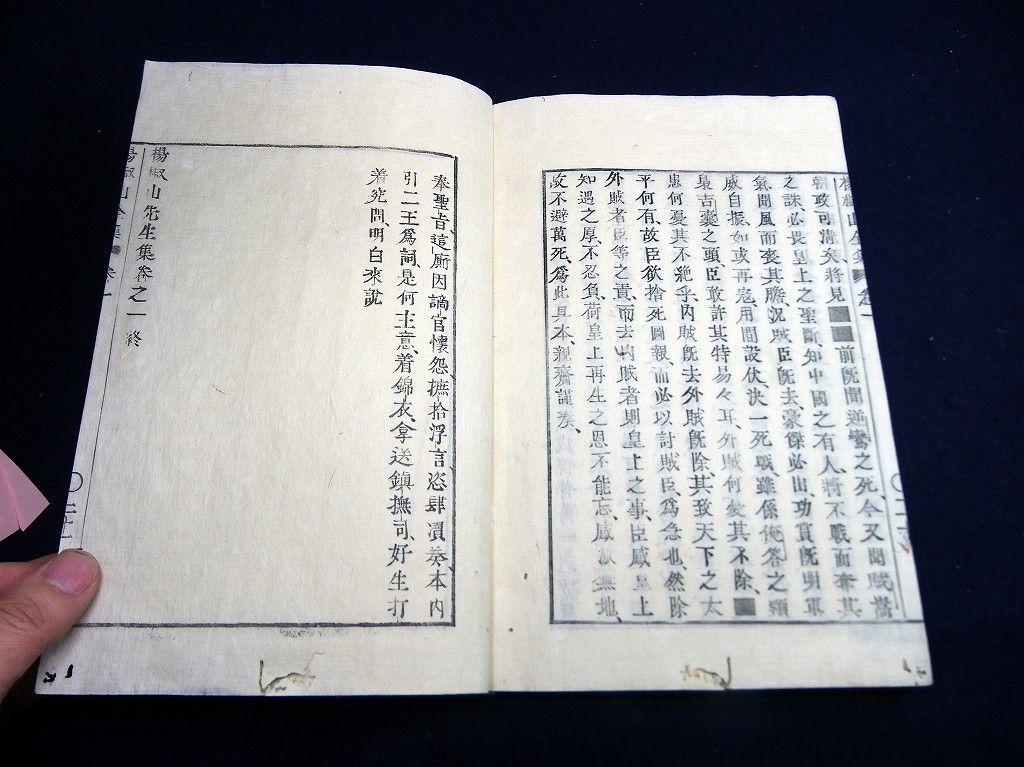 朝政可清矣將見■■前既聞逆鸞之死今又聞賊嵩
之誅必畏皇上之聖斷知中國之有人將不戰而奪其
氣聞風而喪其膽況賊臣既去豪傑必出功賞既明軍
威自振如或再寇用間設伏決一死戰雖係俺答之頸
梟吉囊之頭臣敢許其特易々耳外賊何憂其不除■
患何憂其不絕乎內賊既去外賊既除其致天下之太
平何有故臣欲捨死圖報而必以討賊臣爲急也然除
外賊者臣等之責而去內賊者則皇上之事臣感皇上
知遇之厚不忍負荷皇上再生之恩不能忘感激無地
故不避萬死爲此具本親齎謹奏
奉聖旨這厮因謫官懷怨摭拾浮言恣肆瀆奏本内
引二王爲詞是何主意着錦衣拿送鎮撫司好生打
着究問明白來說
楊椒山先生集卷之一終